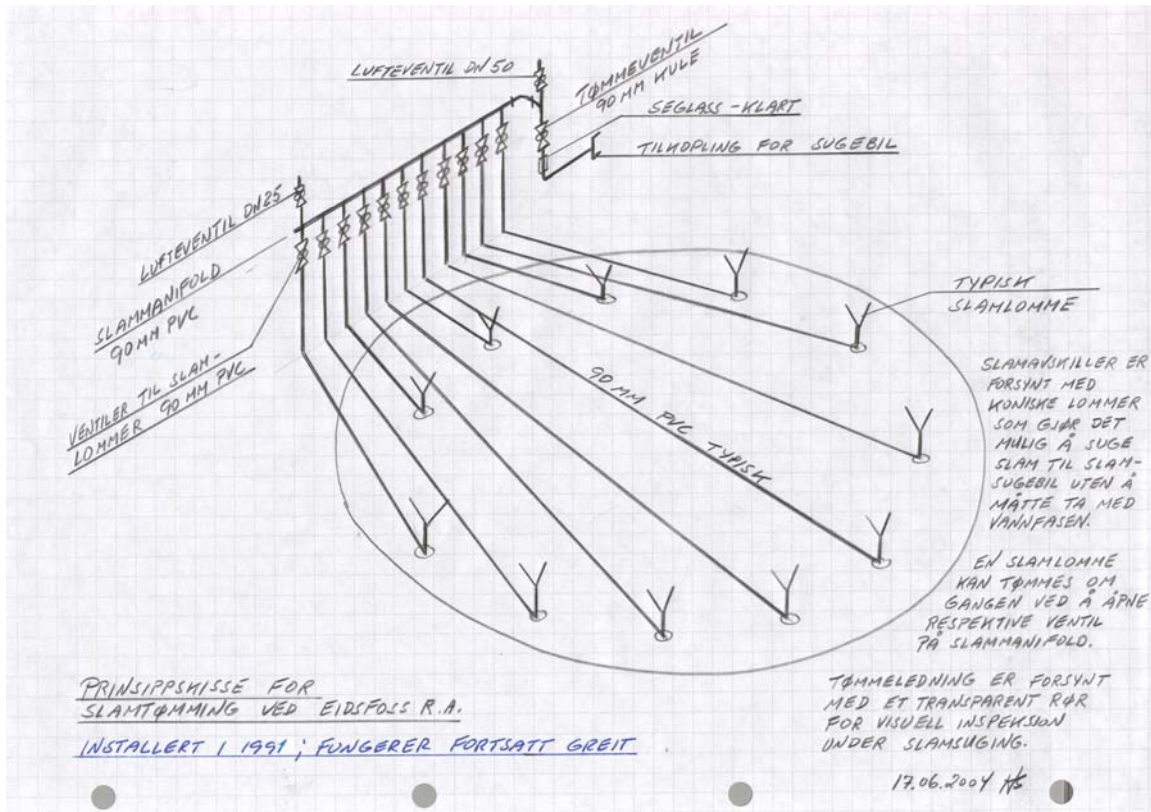 LUFTEVENTIL DN 50
TØMMEVENTIL
90 MM KULE
SEGLASS - KLART
TILKOPLING FOR SUGEBIL
LUFTEVENTIL DN25
SLAMMANIFOLD
90 MM PVC
VENTILER TIL SLAM-
LOMMER 90 MM PVC
TYPISK
SLAMLOMME
90 MM PVC TYPISK
SLAMAVSKILLER ER
FORSYNT MED
KONISKE LOMMER
SOM GJØR DET
MULIG Å SUGE
SLAM TIL SLAM-
SUGEBIL UTEN Å
MÅTTE TA MED
VANNFASEN.
EN SLAMLOMME
KAN TØMMES OM
GANGEN VED Å ÅPNE
RESPEKTIVE VENTIL
PÅ SLAMMANIFOLD.
TØMMELEDNING ER FORSYNT
MED ET TRANSPARENT RØR
FOR VISUELL INSPEKSJON
UNDER SLAMSUGING.
17.06.2004 HS
PRINSIPPSKISSE FOR
SLAMTØMMING VED EIDSFOSS R.A.
INSTALLERT I 1991 ; FUNGERER FORTSATT GREIT